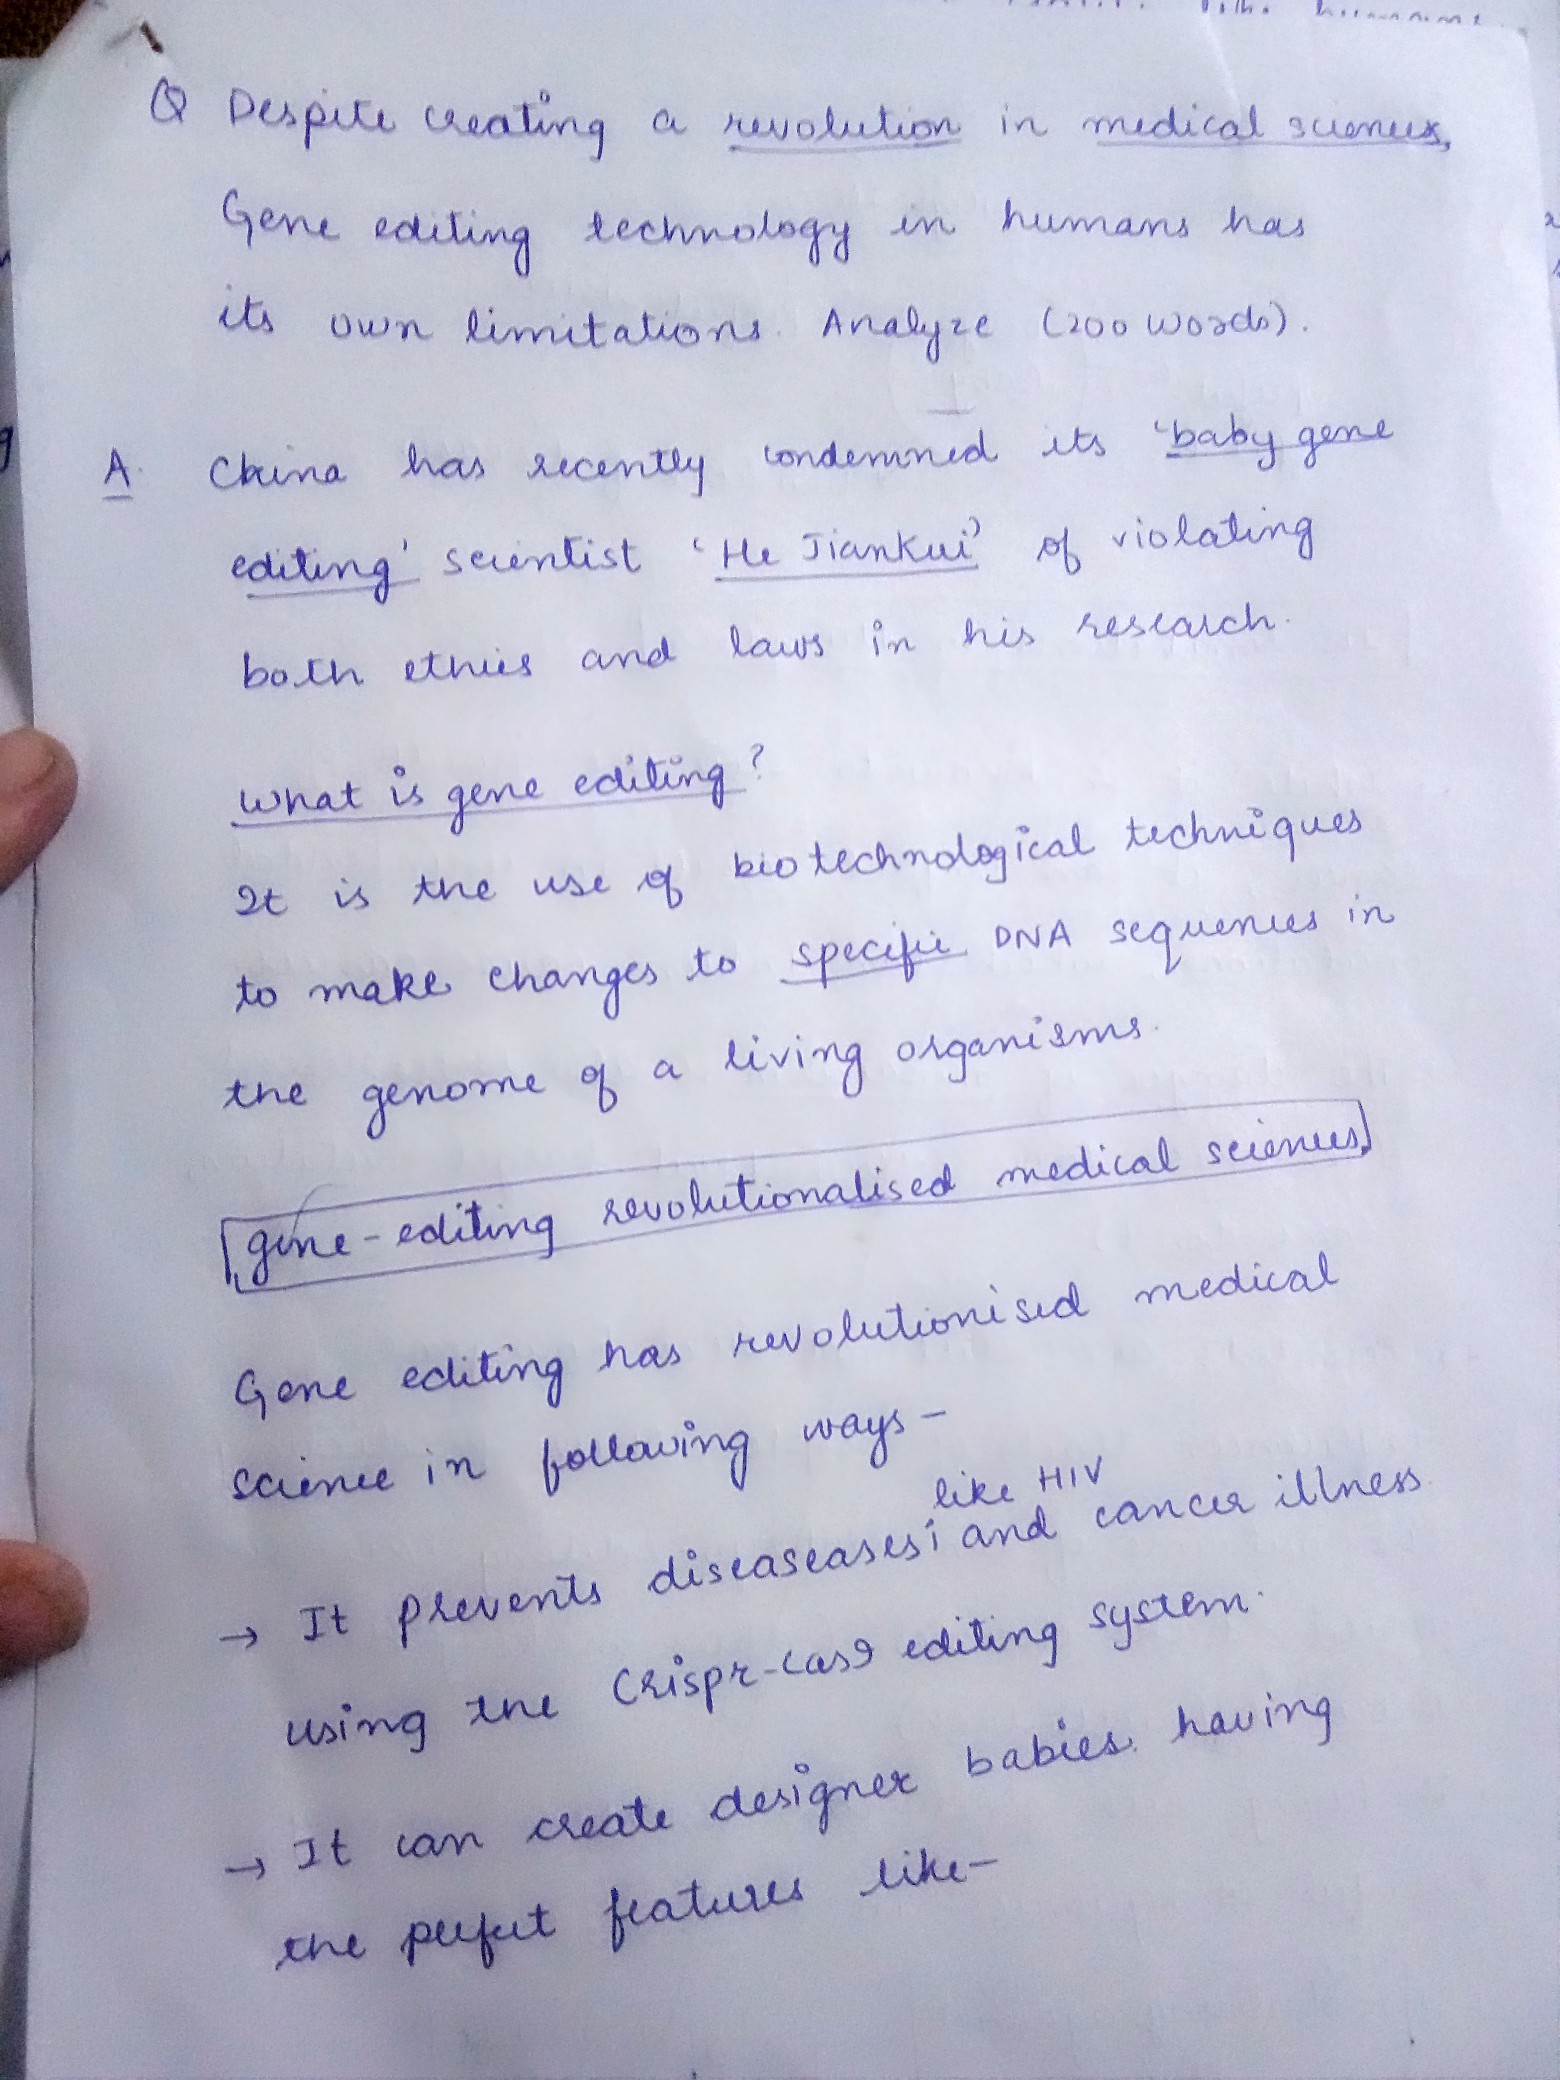 Q Despite creating a revolution in medical sciences,
Gene editing technology in humans has
its own limitations. Analyze (200 words).
A. China has recently condemned its 'baby gene
editing' scientist 'He Jiankui' of violating
both ethics and laws in his research.
What is gene editing?
It is the use of biotechnological techniques
to make changes to specific DNA sequences in
the genome of a living organisms.
gene-editing revolutionalised medical sciences
Gene editing has revolutionised medical
science in following ways -
like HIV
→ It prevents diseaseases; and cancer illness
using the Crispr-Cas9 editing system.
→ It can create designer babies having
the perfect features like -